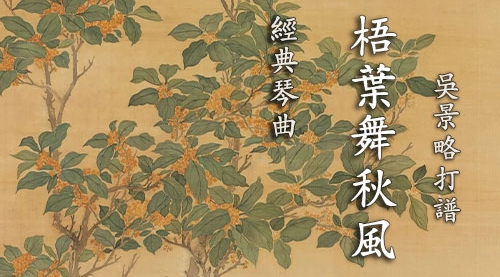 吳景略打譜
梧葉舞秋風
經典琴曲